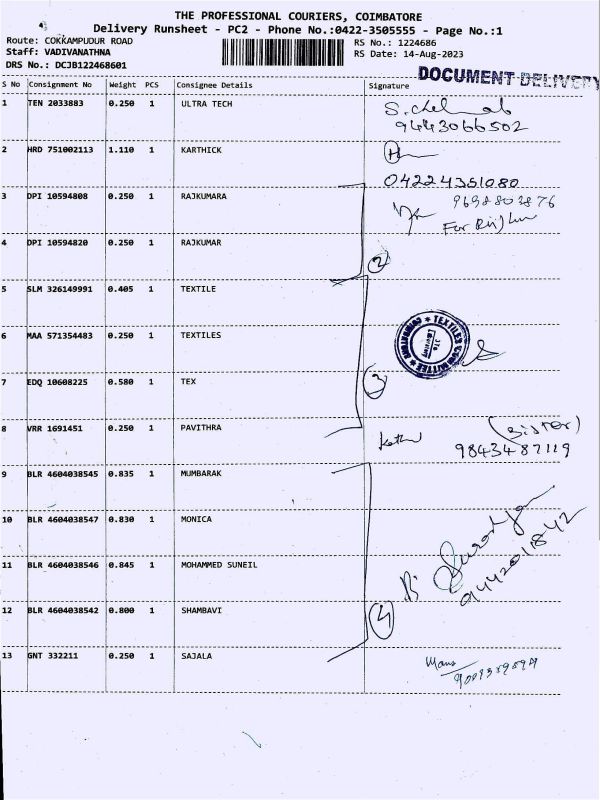 THE PROFESSIONAL COURIERS, COIMBATORE
Delivery Runsheet - PC2 - Phone No.:0422-3505555 - Page No.:1
Route: COKKAMPUDUR ROAD
RS No.: 1224686
Staff: VADIVANATHNA
RS Date: 14-Aug-2023
DRS No.: DCJB122468601
DOCUMENT DELIVERY
S No Consignment No Weight PCS Consignee Details Signature
1 TEN 2033883 0.250 1 ULTRA TECH
9443066502
2 HRD 751002113 1.110 1 KARTHICK
04224351080
3 DPI 10594808 0.250 1 RAJKUMARA
9698803876
For
4 DPI 10594820 0.250 1 RAJKUMAR
2
5 SLM 326149991 0.405 1 TEXTILE
6 MAA 571354483 0.250 1 TEXTILES
TEXTILES COMMITTEE
7 EDQ 10608225 0.580 1 TEX
3
8 VRR 1691451 0.250 1 PAVITHRA
(sister)
9843487119
9 BLR 4604038545 0.835 1 MUMBARAK
10 BLR 4604038547 0.830 1 MONICA
11 BLR 4604038546 0.845 1 MOHAMMED SUNEIL
9442011842
12 BLR 4604038542 0.800 1 SHAMBAVI
4
13 GNT 332211 0.250 1 SAJALA